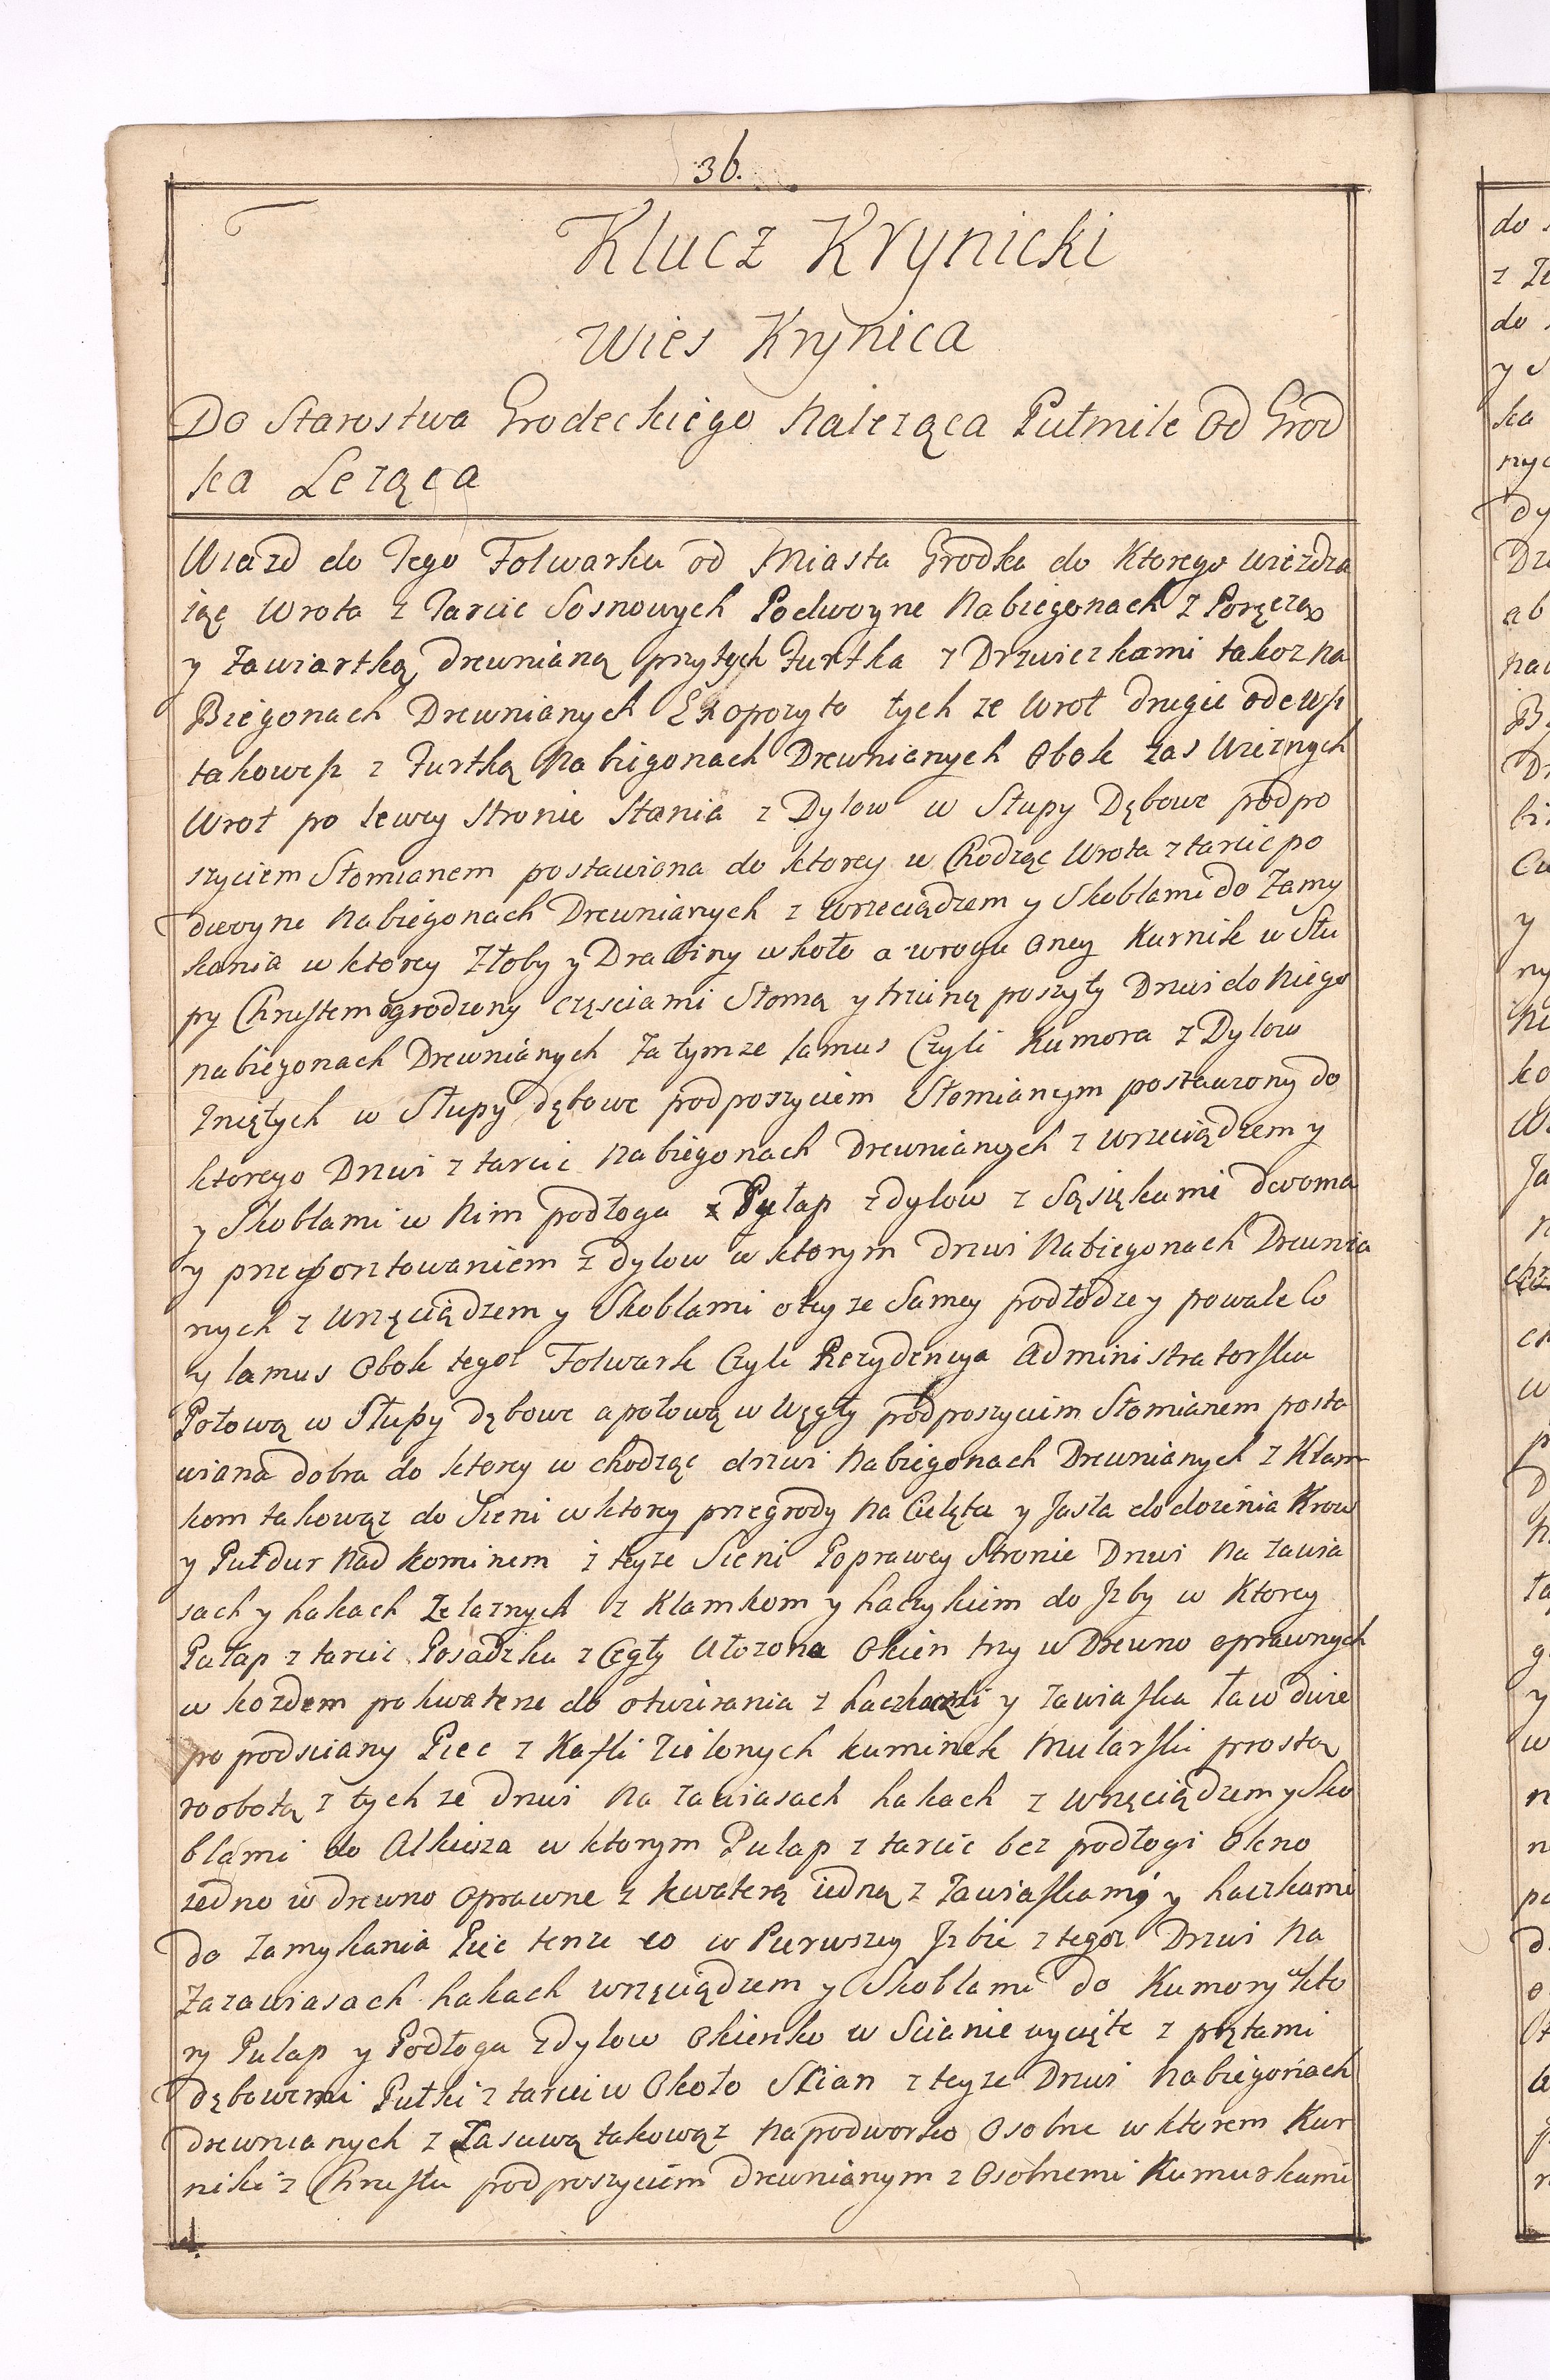 36.
Klucz Krynicki
Wies Krynica
Do Starostwa Grodeckiego Nalerząca Pułmile Od Grod
ka Lerząca
Wiazd do Tego Folwarku od Miasta Grodka do Ktorego wiezdza
iąc Wrota z Tarcic Sosnowych Podwoyne Nabiegonach z Poręczą
y Zawiartką drewnianą przytych Furtka z Drzwiczkami takoz Na
Biegonach Drewnianych Exopozyto tych ze Wrot drugie odewsi
takowesz z Furtką Nabiegonach Drewnianych Obok zas Wieznych
Wrot po lewey Stronie Stania z Dylow w Słupy Dębowe podpo
szyciem Słomianem postawiona do ktorey w Chodząc Wrota z tarcic po
dwoyne Nabiegonach Drewnianych z wrzeciądzem y Skoblami do Zamy
kania w ktorey Złoby y Drabiny wkoło a wrogu oney Kurnik w Słu
py Chrustem ogrodzony częsciami Słomą y trzciną poszyty Drzwi do Niego
nabiegonach Drewnianych Za tymze lamus Czyli Kumora z Dylow
Zniętych w Słupy dębowe podposzyciem Słomianym postawiony do
ktorego Drzwi z tarcic Nabiegonach Drewnianych z wrzeciądzem y
y Skoblami w Nim podłoga z Pułap z dylow z Sąsiękami dwoma
y przeforsztowaniem z dylow w ktorym drzwi Nabiegonach Drewnia
nych z Wrzęciądzem y Skoblami o tey ze Samey podłodze y powale Co
y lamus Obok tegoz Folwark Czyli Rezydencya Administratorska
Połową w Słupy dębowe a połową w Węgły podposzyciem Słomianem posta
wiana dobra do ktorey w chodząc drzwi Nabiegonach Drewnianych z Klam
kom takowąz do Sieni w ktorey przegrody Na Cielęta y Jasła do doienia Krow
y Pułdur Nad Kominem z teyze Sieni Poprawey Stronie Drzwi Na zawia
sach y hakach Zelaznych z Klamkom y haczykiem do Jzby w Ktorey
Pułap z tarcic Posadzka z Cegły Ułozona Okien trzy w Drewno oprawnych
w kozdem po kwaterze do otwirania z haczkami y zawiaska Ław dwie
po podsciany Piec z Kafli Zielonych kuminek Mularski prostą
roobotą z tych ze drzwi Na zawiasach hakach z Wrzęciądzem y Sko
blami do Alkiesza w ktorym Pułap z tarcic bez podłogi Okno
iedno w drewno Oprawne z kwaterą iedną z Zawiaskamy y haczkami
do Zamykania Piec tenze co w Pierwszey Jzbie z tegoz Drzwi Na
Zazawiasach hakach wrzęciądzem y Skoblami do Kumory w kto
ry Pułap y Podłoga z dylow Okienko w Scianie wycięte z prętami
dębowemi Pułki z tarcic w Około Scian z teyze Drzwi Nabiegonach
drewnianych z Zasuwą takowąz Na podworko Osobne w ktorem Kur
niki z Chrustu podposzyciem drewnianym z Osobnemi Kumurkami